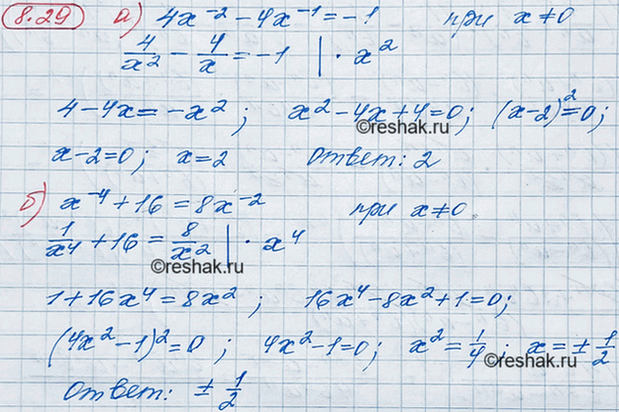 8.29 а) 4x⁻² - 4x⁻¹ = -1 при x ≠ 0
4/x² - 4/x = -1 | · x²
4 - 4x = -x² ; x² - 4x + 4 = 0; (x-2)² = 0;
©reshak.ru
x - 2 = 0 ; x = 2 ответ: 2
б) x⁻⁴ + 16 = 8x⁻² при x ≠ 0
1/x⁴ + 16 = 8/x² | · x⁴
©reshak.ru
1 + 16x⁴ = 8x² ; 16x⁴ - 8x² + 1 = 0;
(4x² - 1)² = 0 ; 4x² - 1 = 0; x² = 1/4 ; x = ± 1/2
©reshak.ru
ответ: ± 1/2